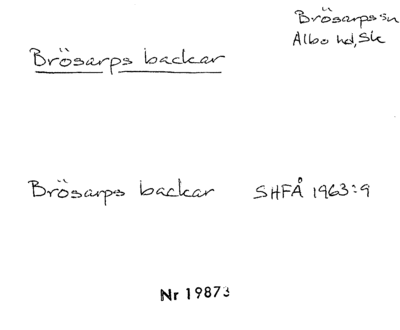 Brösarps sn
Albo hd, Sk
Brösarps backar
Brösarps backar SHFÅ 1963:9
Nr 19873